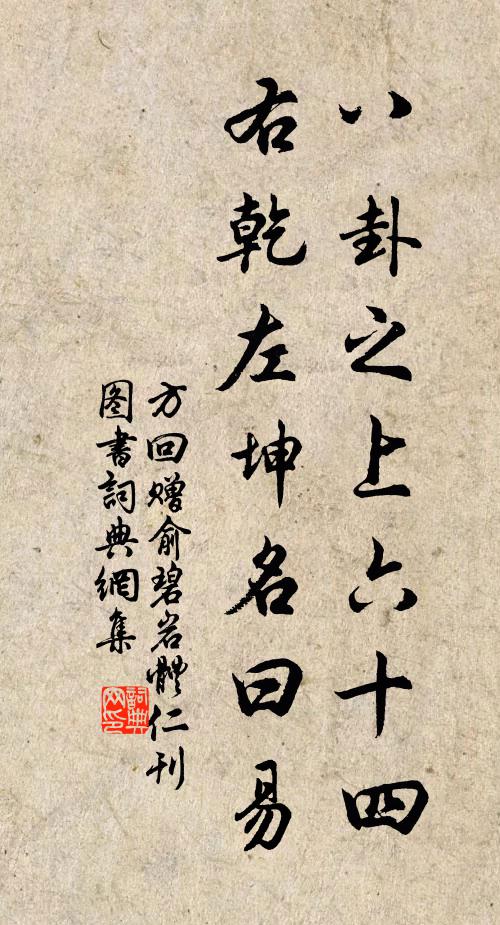 八卦之上六十四
右乾左坤名曰易
方回赠俞碧岩體仁刊
图書詞典網集
詞典
网印